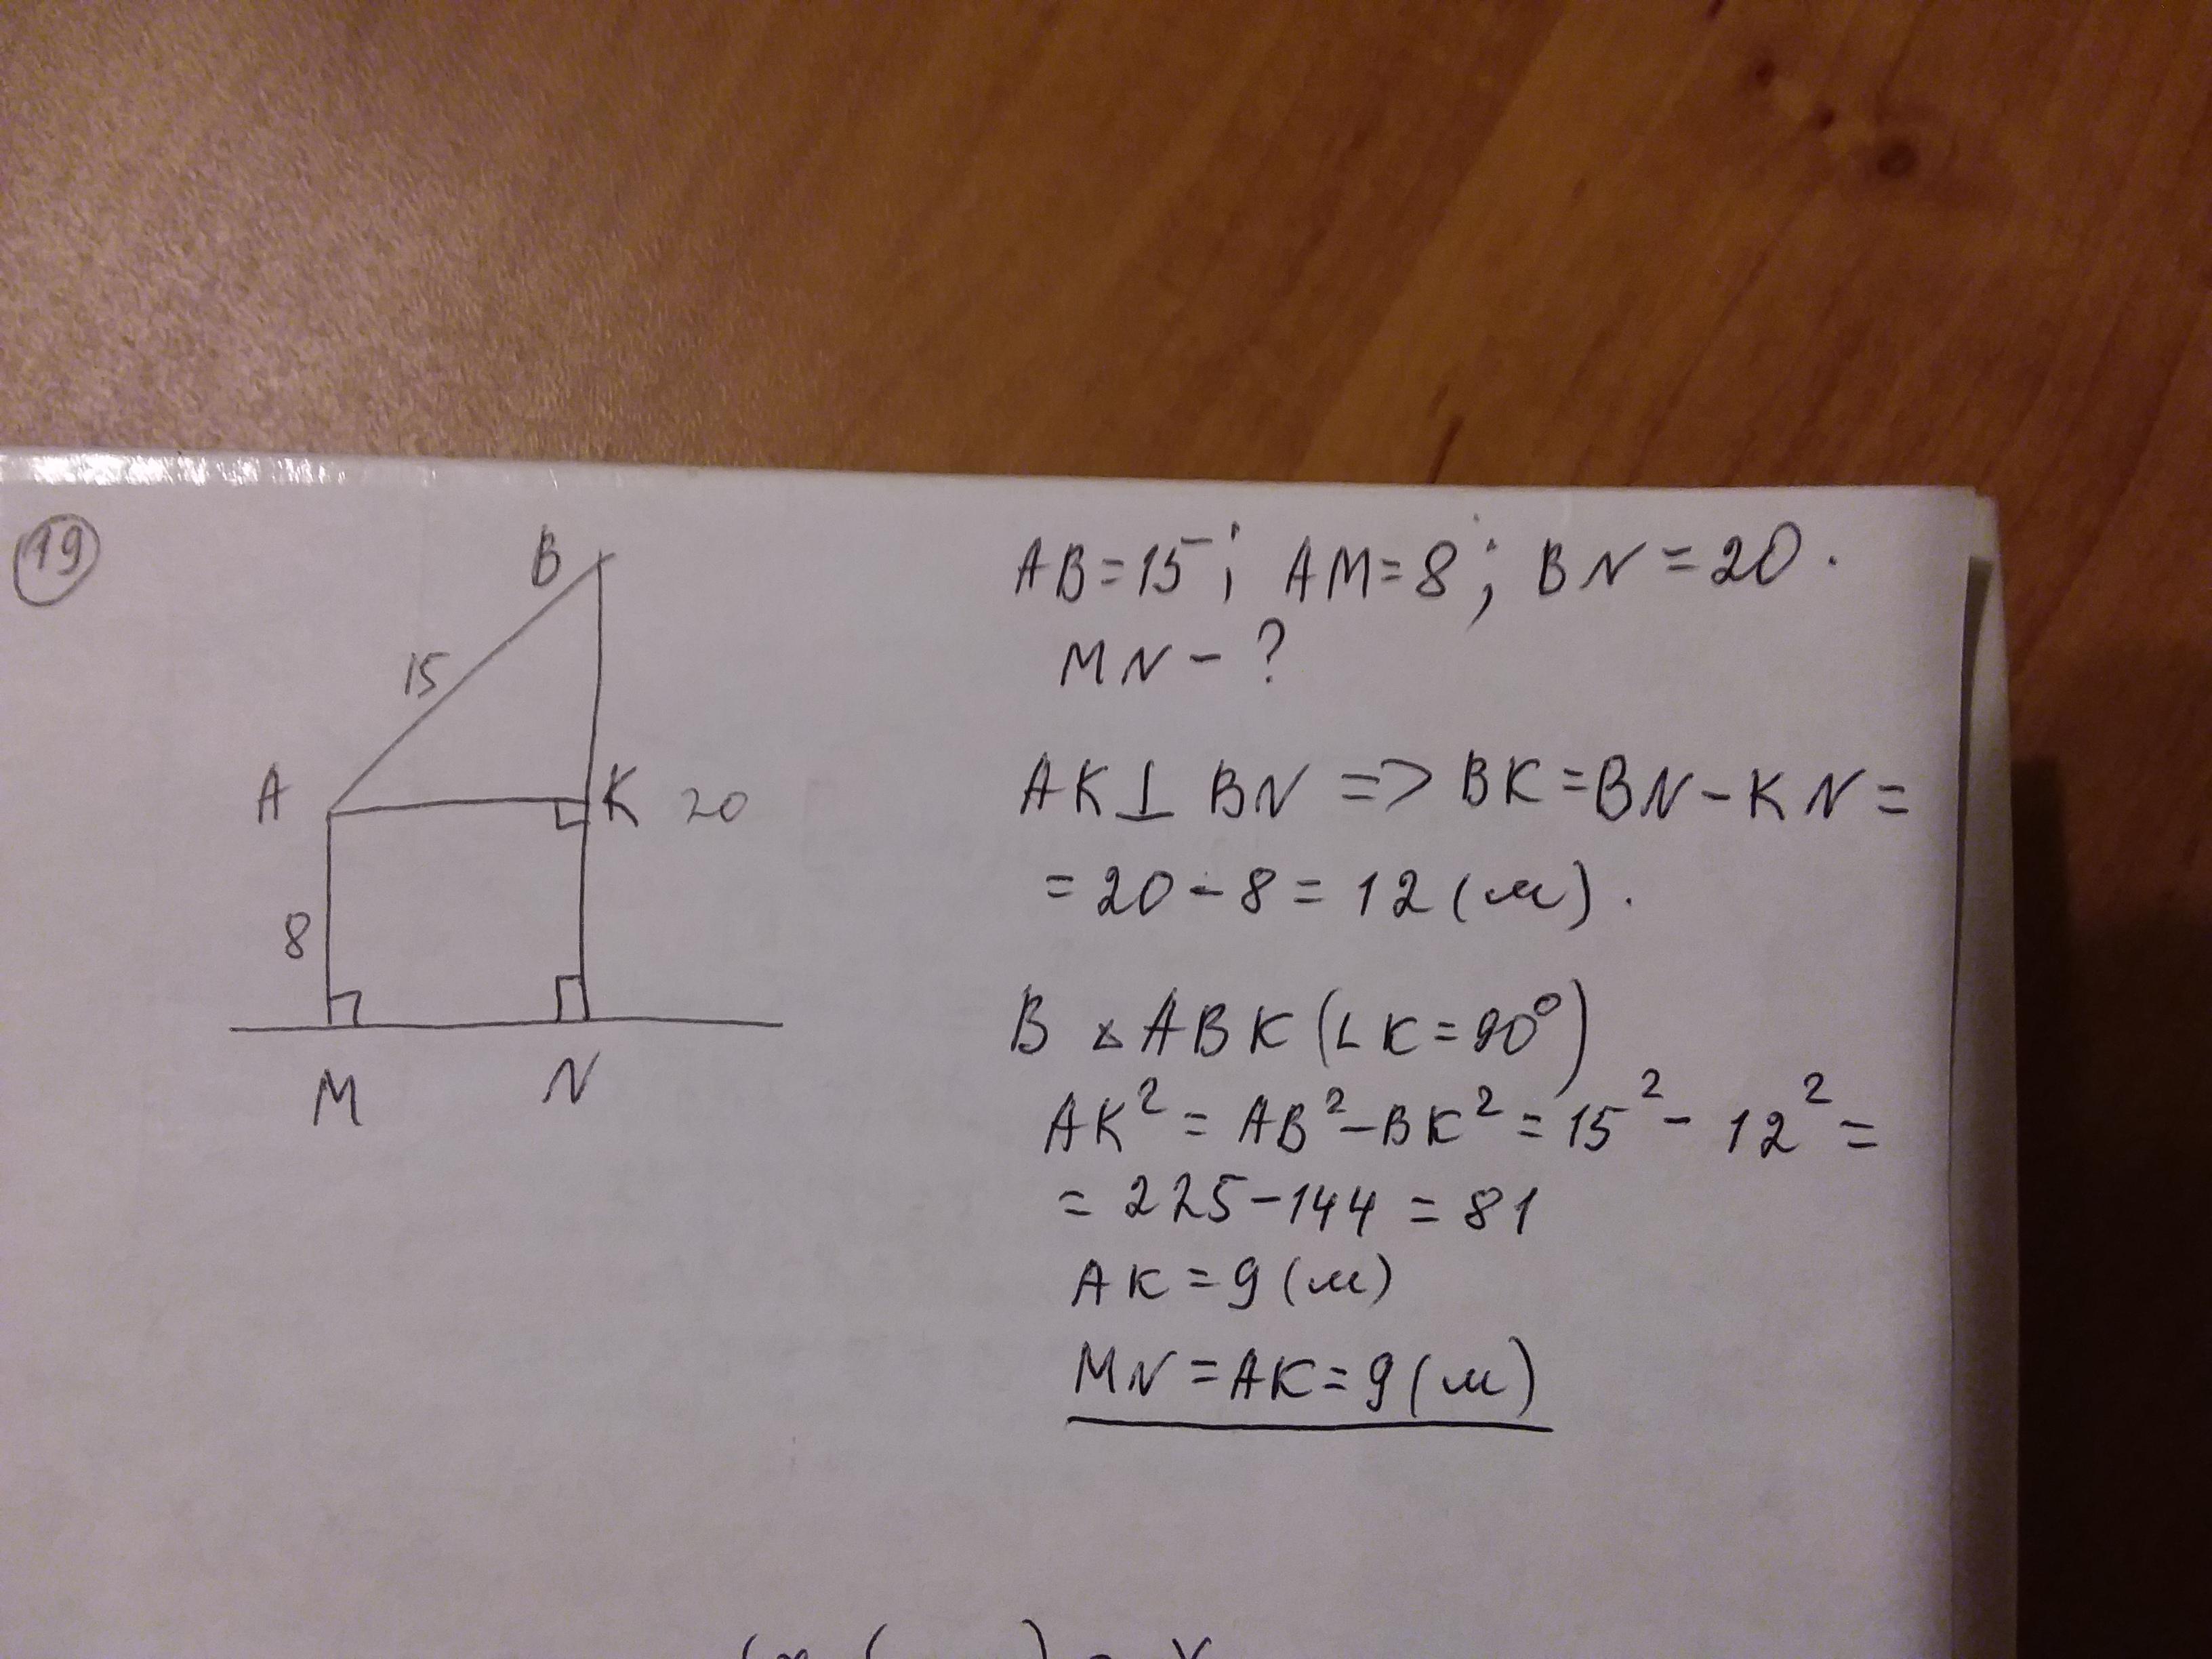 19
B
15
A
K 20
8
M
N
AB=15; AM=8; BN=20.
MN-?
AK⊥BN => BK=BN-KN=
=20-8=12(м).
В △ABK(∠K=90°)
AK²=AB²-BK²=15²-12²=
=225-144=81
AK=9(м)
MN=AK=9(м)